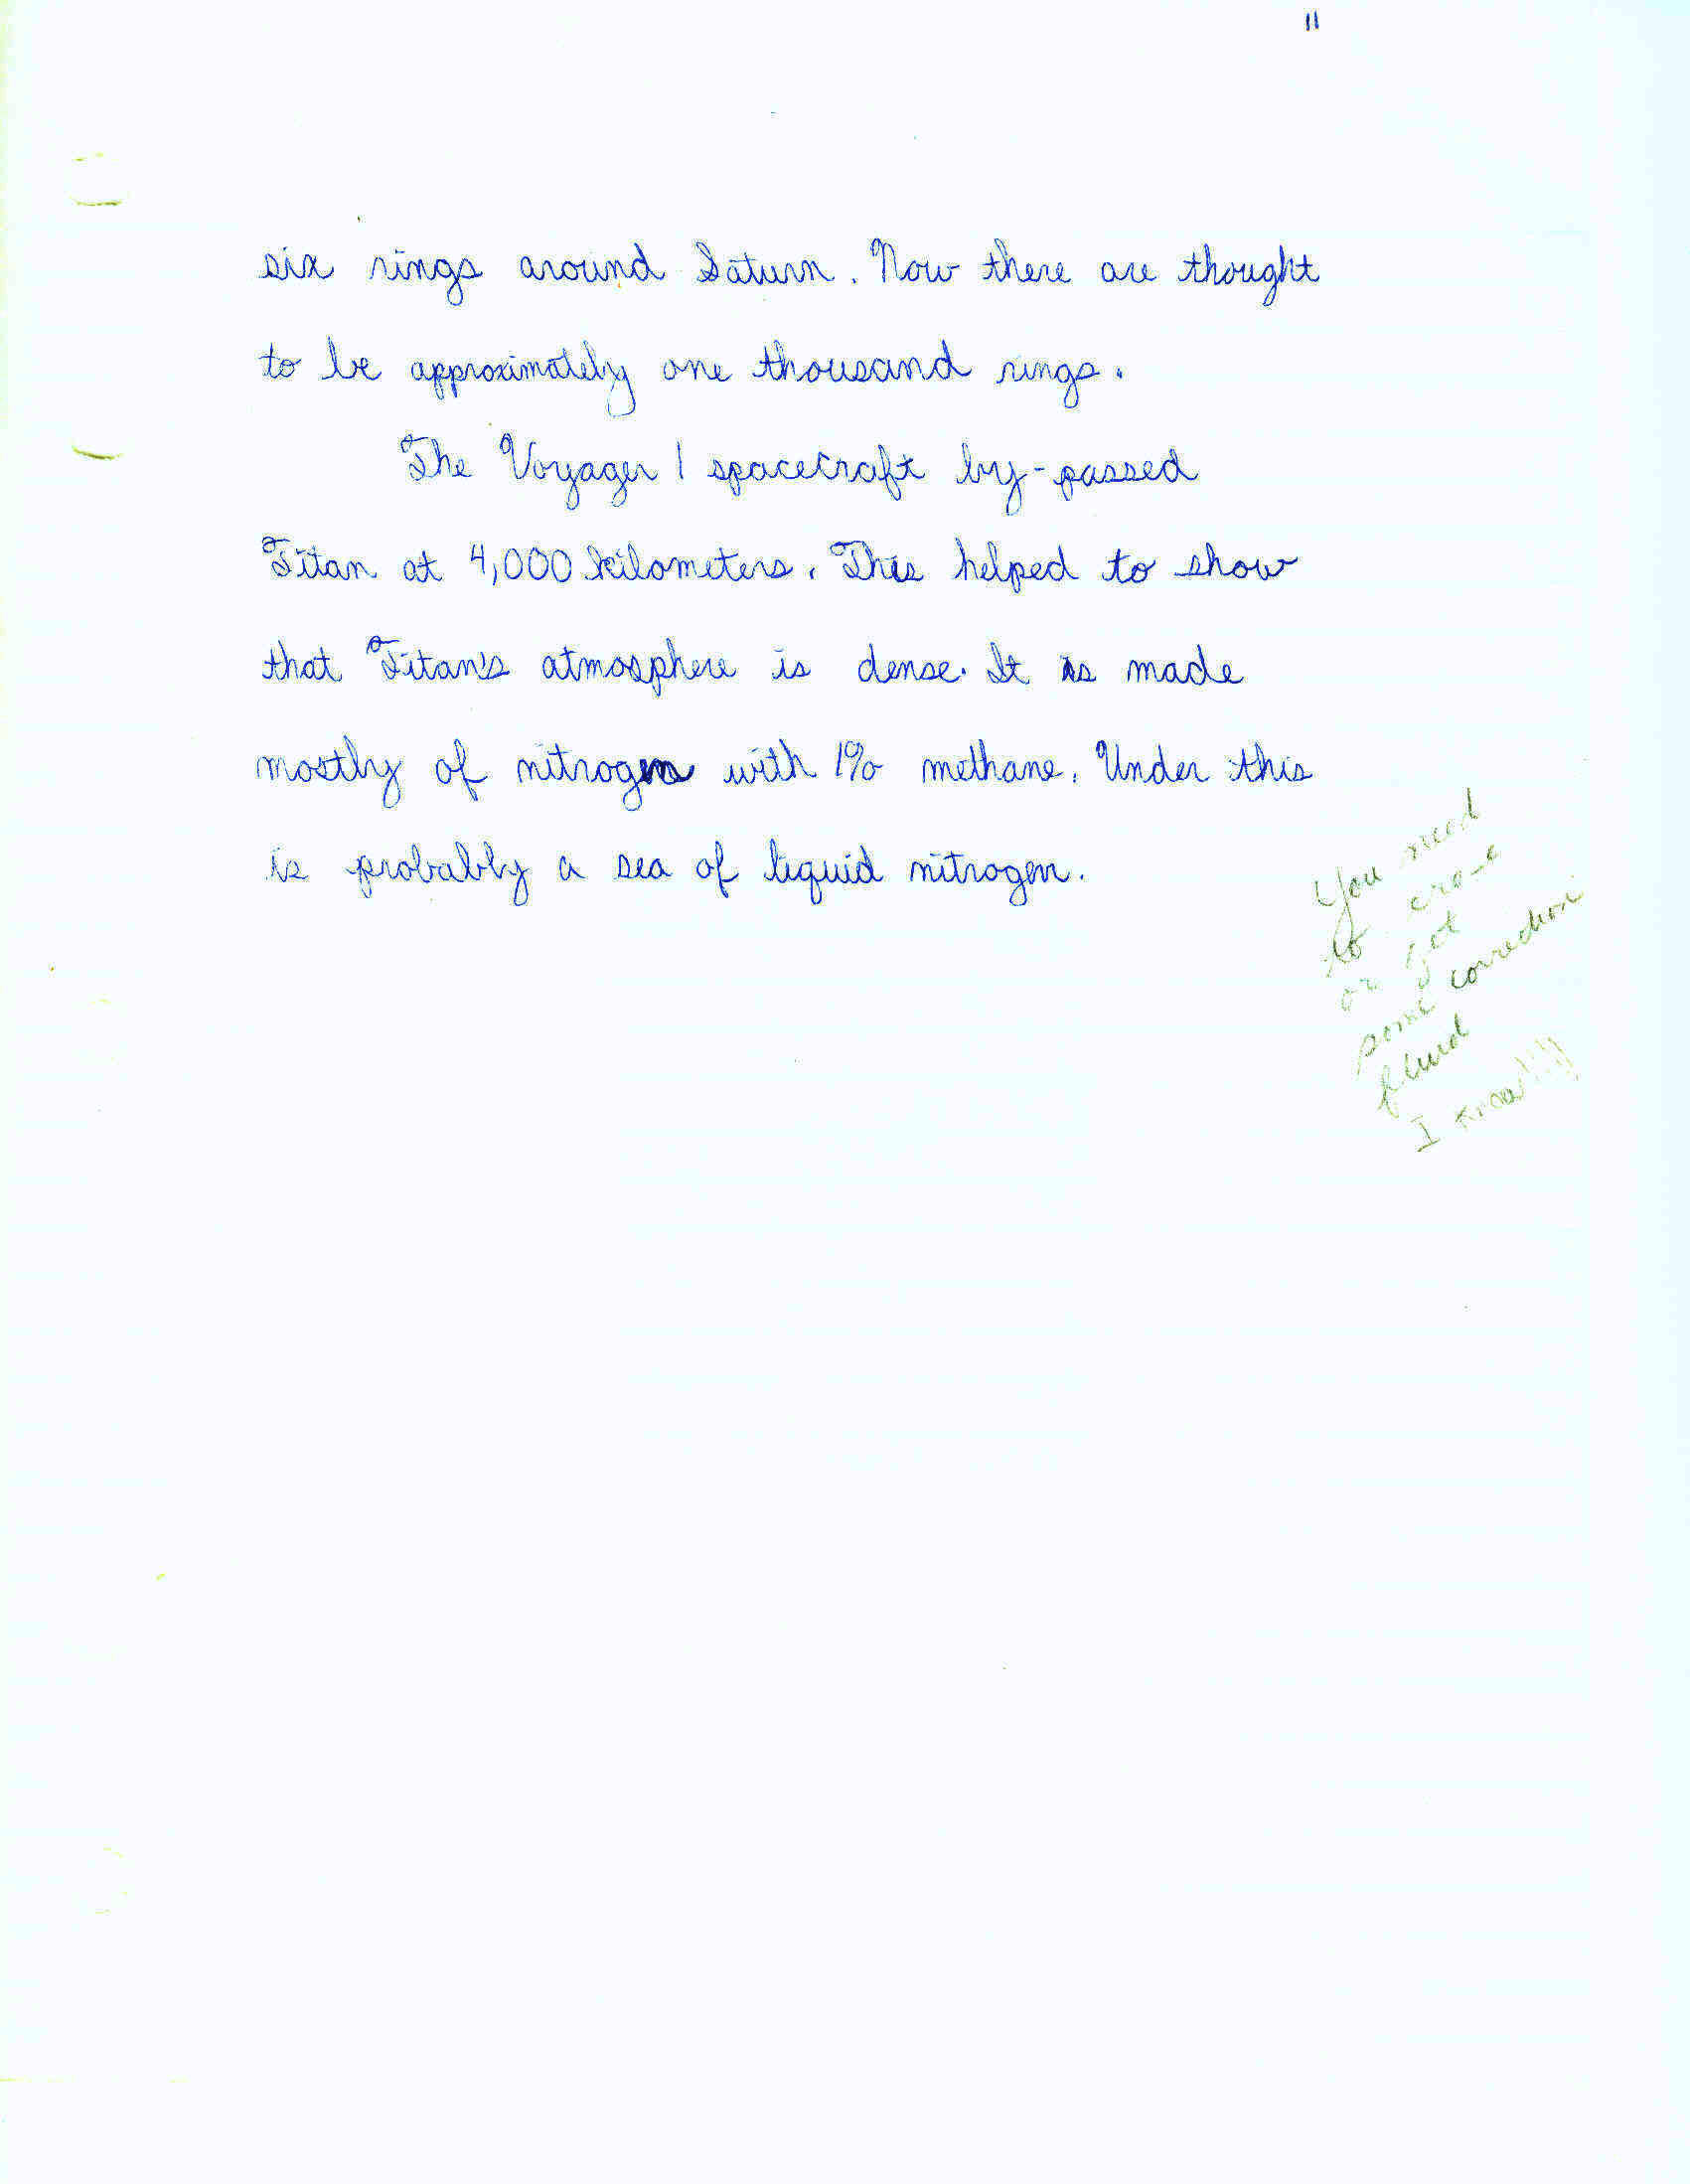 11
six rings around Saturn. Now there are thought
to be approximately one thousand rings.
The Voyager 1 spacecraft by-passed
Titan at 4,000 kilometers. This helped to show
that Titan's atmosphere is dense. It is made
mostly of nitrogen with 1% methane. Under this
is probably a sea of liquid nitrogen.
You need
to erase
or get
some correction
fluid
I know!!!